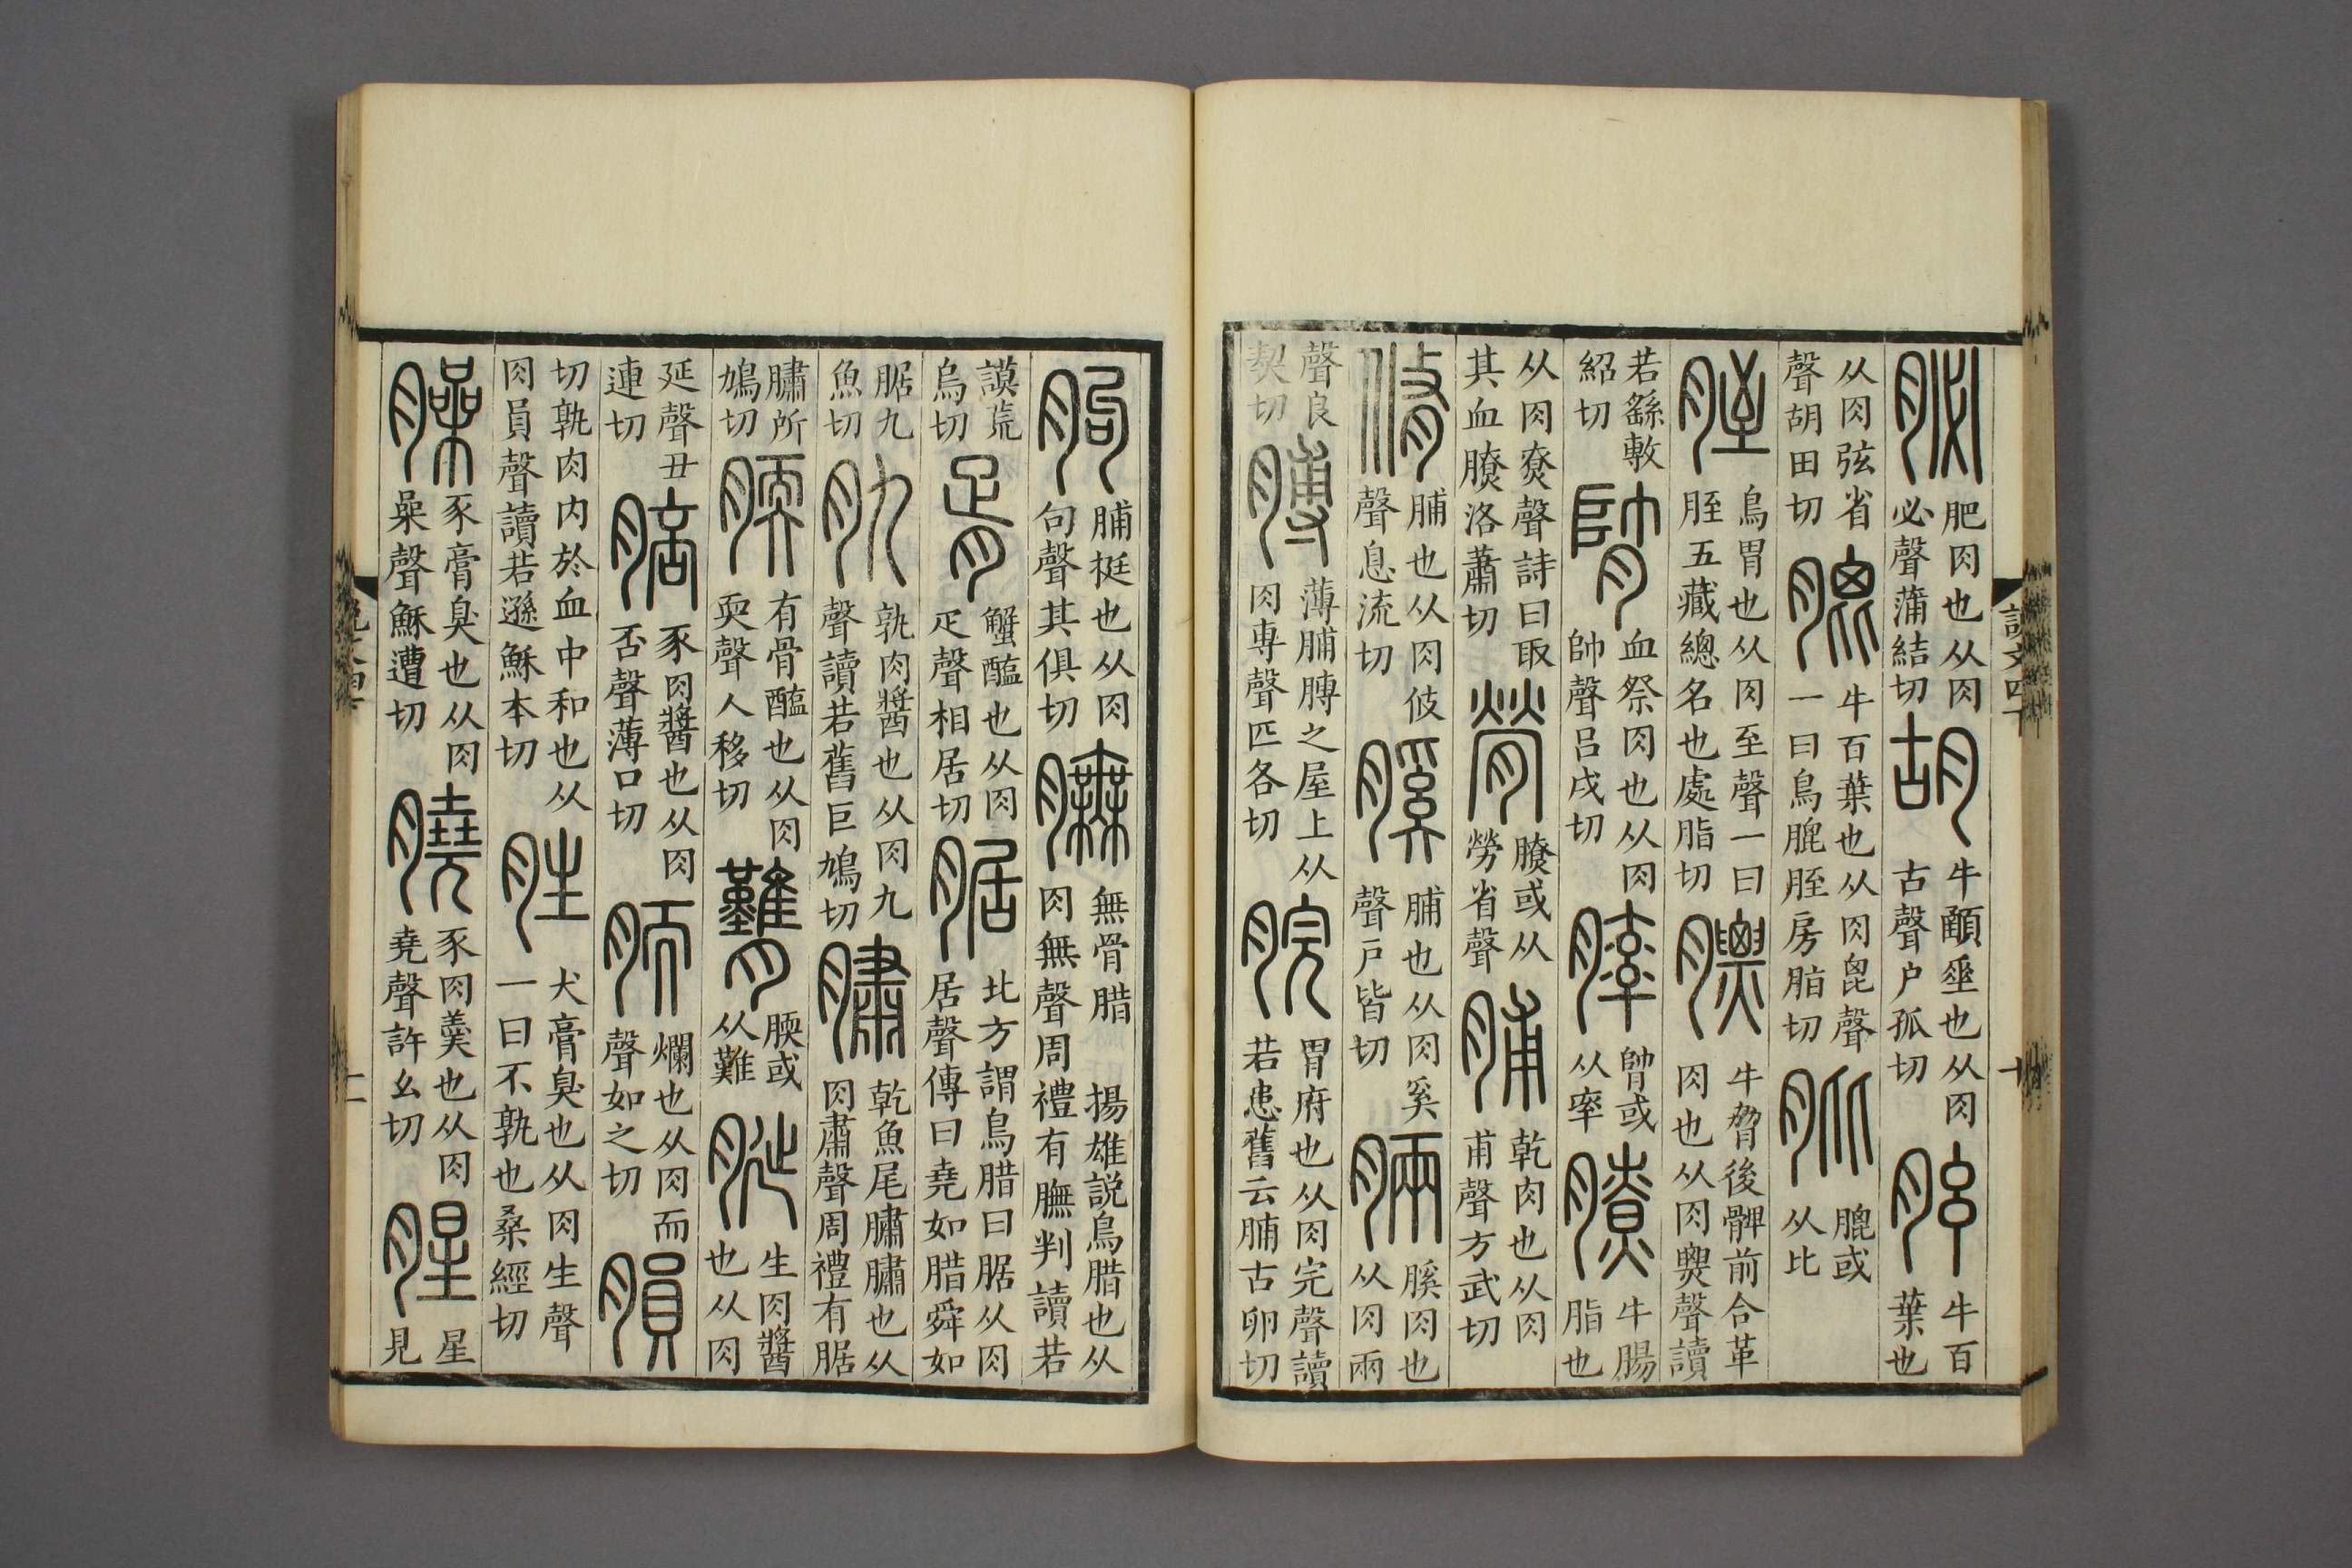 説文四下
十
䏟肥肉也从肉必聲蒲結切胡牛顄垂也从肉古聲户孤切胘牛百葉也
从肉弦省聲胡田切膍牛百葉也从肉毘聲一曰鳥膍胵房脂切肶膍或从比
胵鳥胃也从肉至聲一曰胵五藏總名也處脂切膘牛脅後髀前合革肉也从肉𤐫聲讀
若繇敷紹切𦠄血祭肉也从肉帥聲呂戌切膟𦠄或从率膫牛腸脂也
从肉尞聲詩曰取其血膫洛蕭切膋膫或从勞省聲脯乾肉也从肉甫聲方武切
脩脯也从肉攸聲息流切膎脯也从肉奚聲戶皆切脼膎肉也从肉兩
聲良契切膊薄脯膊之屋上从肉尃聲匹各切脘胃府也从肉完聲讀若患舊云脯古卵切
朐脯挺也从肉句聲其俱切膴無骨腊揚雄説鳥腊也从肉無聲周禮有膴判讀若
謨荒烏切胥蟹醢也从肉疋聲相居切腒北方謂鳥腊曰腒从肉居聲傳曰堯如腊舜如
腒九魚切肍孰肉醬也从肉九聲讀若舊巨鳩切䐹乾魚尾䐹䐹也从肉肅聲周禮有腒
䐹所鳩切腝有骨醢也从肉耎聲人移切𦠆腝或从難脠生肉醬也从肉
延聲丑連切䏽豕肉醬也从肉否聲薄口切胹爛也从肉而聲如之切䐣
切孰肉内於血中和也从肉員聲讀若遜穌本切胜犬膏臭也从肉生聲一曰不孰也桑經切
臊豕膏臭也从肉喿聲穌遭切膮豕肉羹也从肉堯聲許幺切腥星見